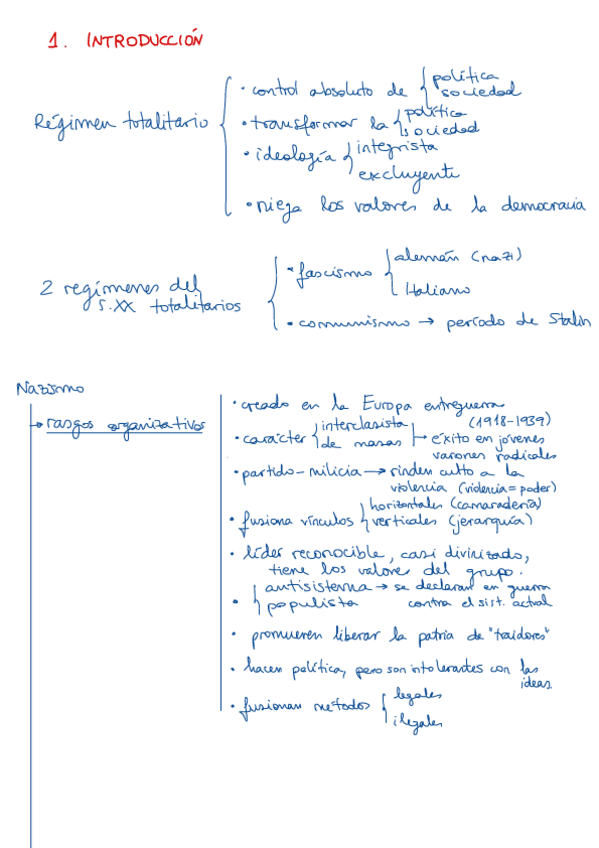 1. INTRODUCCIÓN
Régimen totalitario
• control absoluto de política
sociedad
• transformar la política
sociedad
• ideología integrista
excluyente
• niega los valores de la democracia
2 regímenes del
S.XX totalitarios
• fascismo alemán (nazi)
Italiano
• comunismo → período de Stalin
Nazismo
→ rasgos organizativos
• creado en la Europa entreguerra
(1918-1939)
• carácter interclasista
de masas → éxito en jóvenes
varones radicales
• partido-milicia → rinden culto a la
violencia (violencia = poder)
• fusiona vínculos horizontales (camaradería)
verticales (jerarquía)
• líder reconocible, casi divinizado,
tiene los valores del grupo.
• antisistema → se declaran en guerra
populista contra el sist. actual
• promueven liberar la patria de "traidores"
• hacen política, pero son intolerantes con las
ideas.
• fusionan métodos legales
ilegales